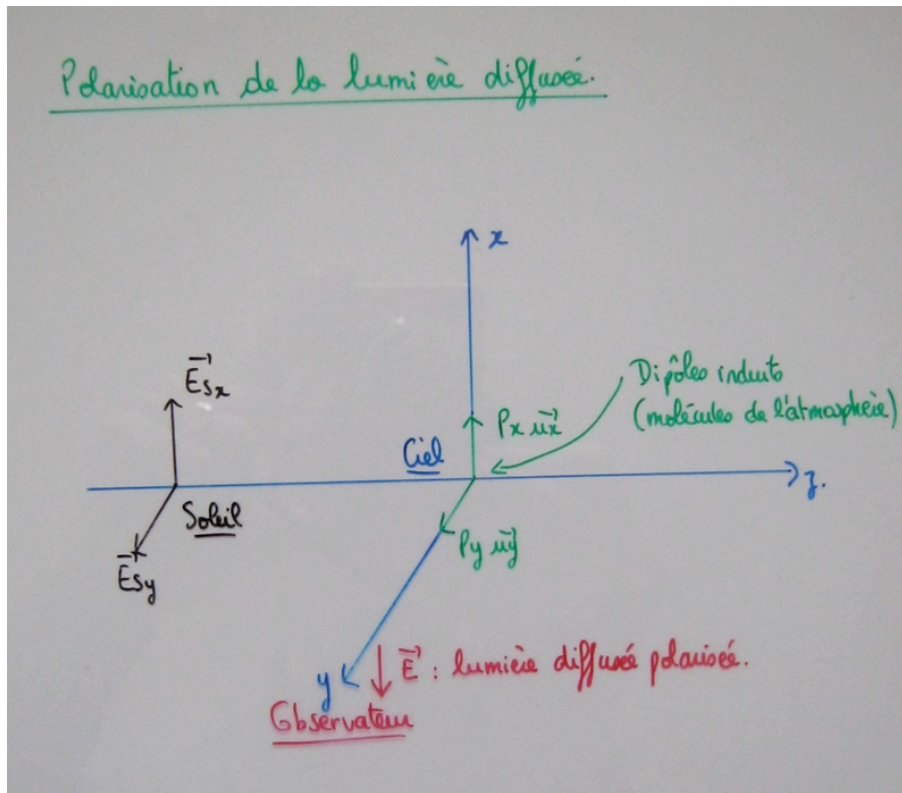 Polarisation de la lumière diffusée.
x
E⃗sx
Dipôles induits
(molécules de l'atmosphère)
Px u⃗x
Ciel
z.
Soleil
Py u⃗y
E⃗sy
E⃗ : lumière diffusée polarisée.
y
Observateur